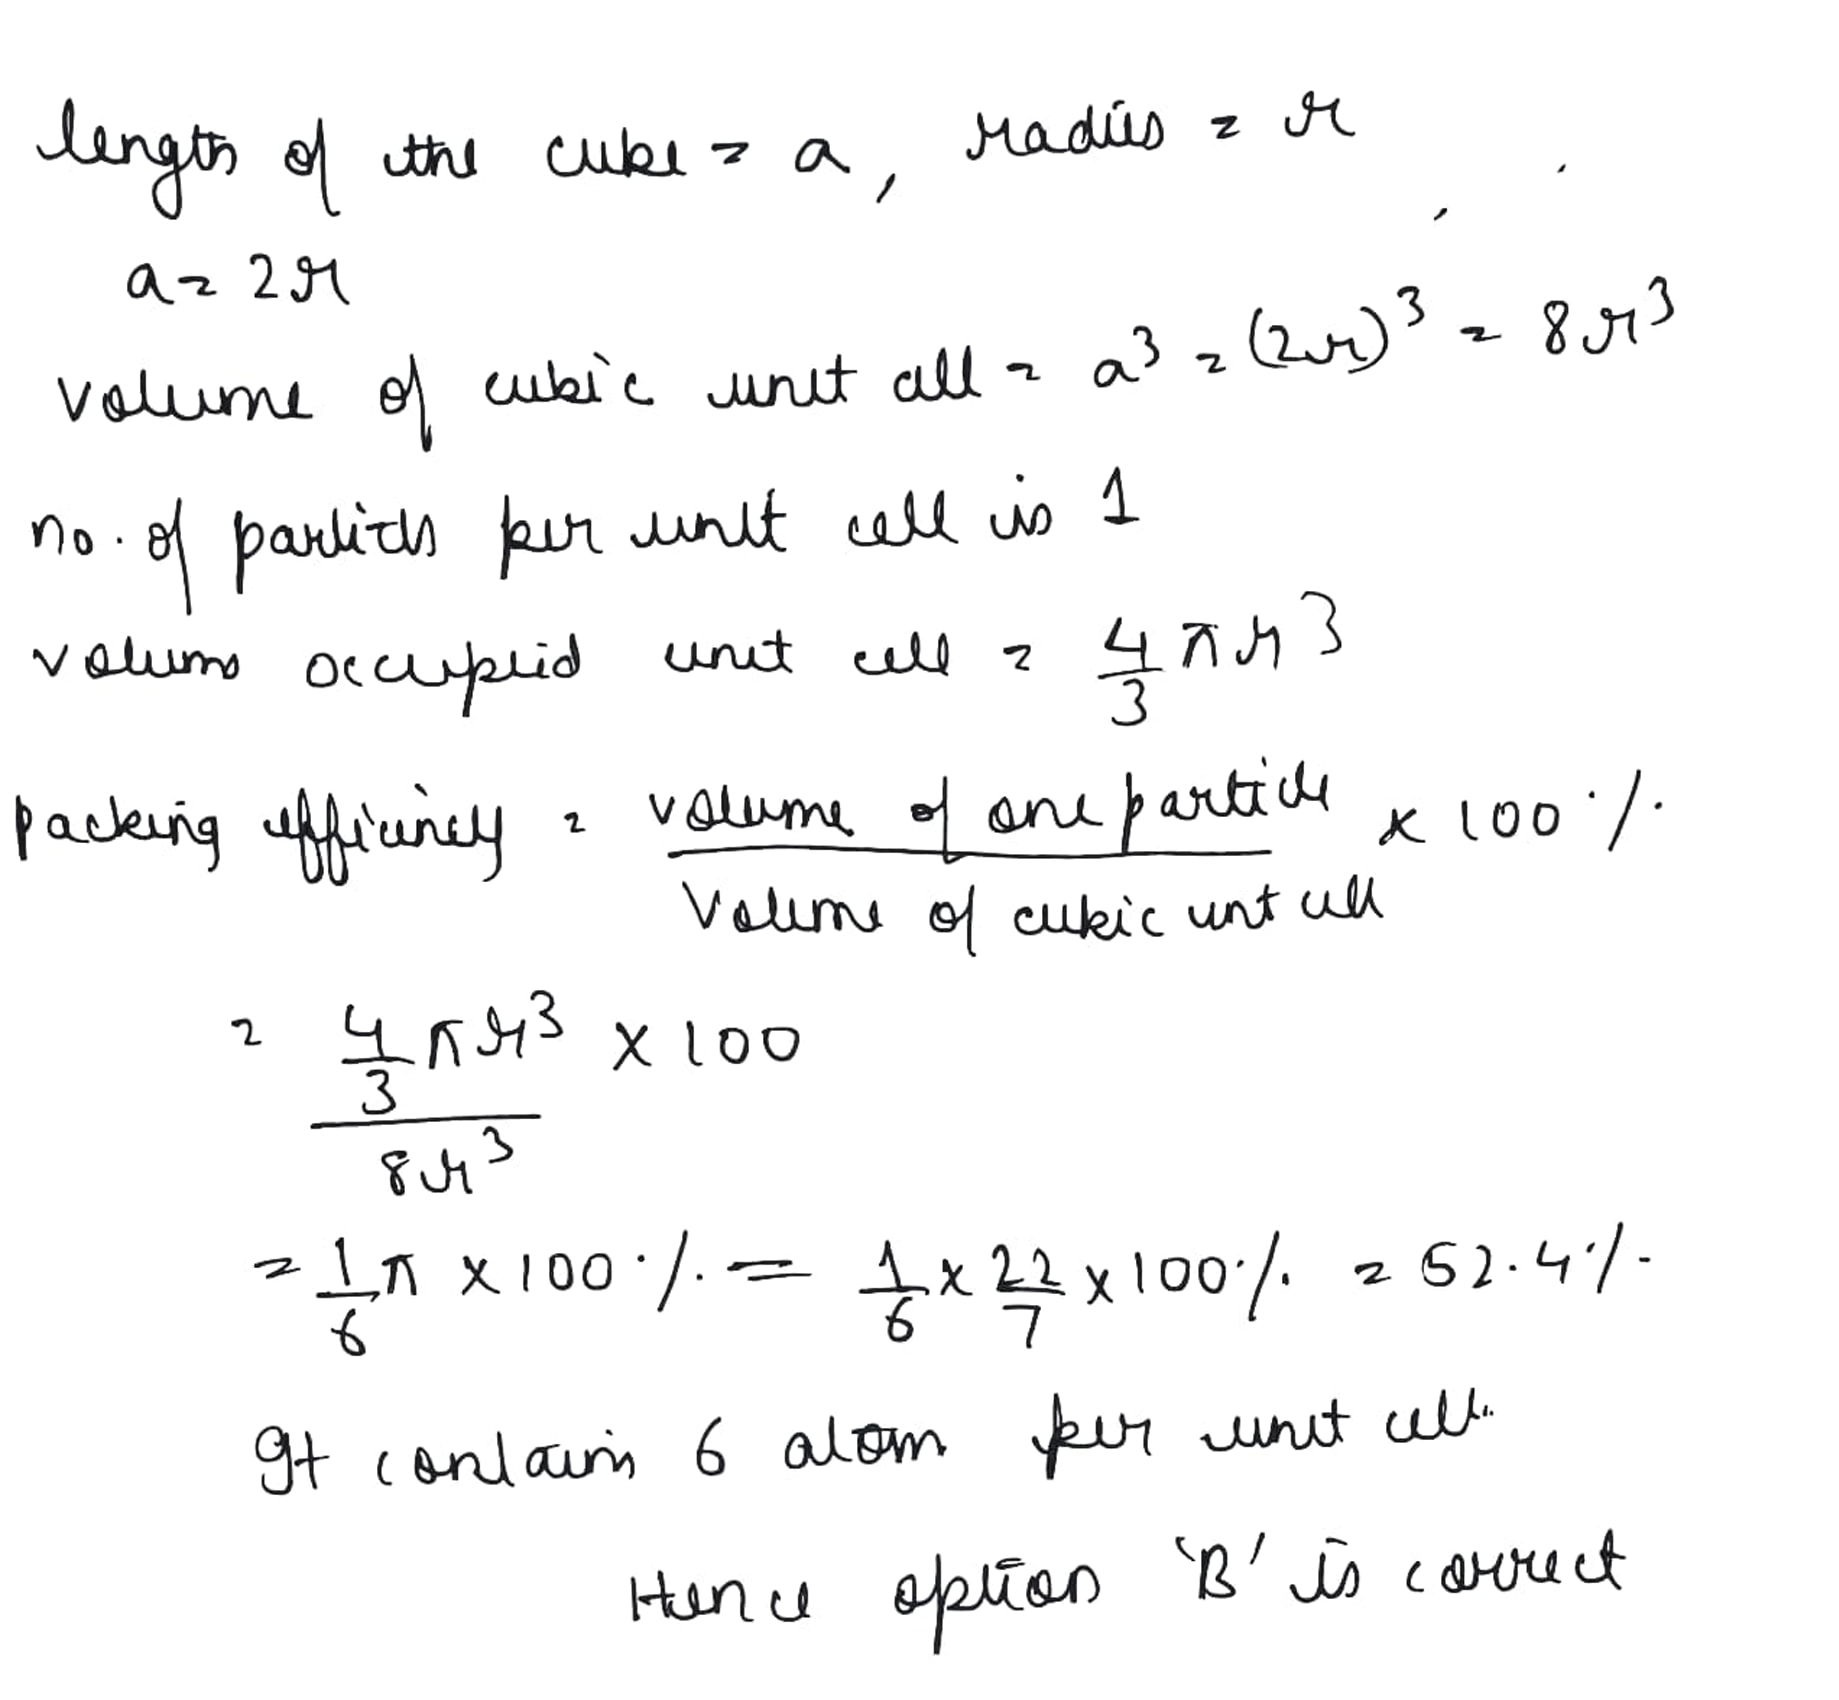 length of the cube = a, radius = r
a = 2r
volume of cubic unit cell = a³ = (2r)³ = 8r³
no. of particls per unit cell is 1
volume occupied unit cell = 4/3 πr³
packing efficiency = volume of one particle / Volume of cubic unt cell × 100 %
= 4/3 πr³ / 8r³ × 100
= 1/6 π × 100 % = 1/6 × 22/7 × 100 % = 52.4 %
It contains 6 atom per unit cell.
Hence option 'B' is correct